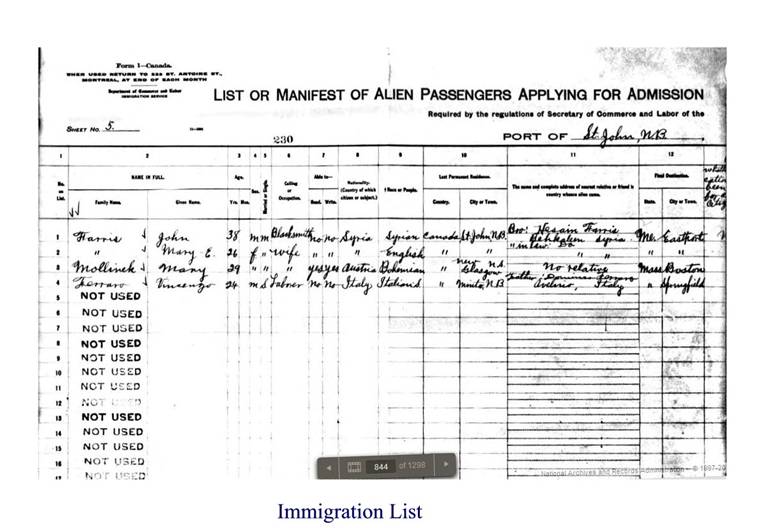 Form 1—Canada.
WHEN USED RETURN TO ANTOINE ST.,
MONTREAL, AT END OF EACH MONTH
Department of Commerce and Labor
IMMIGRATION SERVICE
LIST OR MANIFEST OF ALIEN PASSENGERS APPLYING FOR ADMISSION
Required by the regulations of Secretary of Commerce and Labor of the
SHEET No. 5.
230
PORT OF St. John, N.B.
1 2 3 4 5 6 7 8 9 10 11 12
No. on List. NAME IN FULL. Age. Sex. Calling or Occupation. Able to— Nationality. (Country of which citizen or subject.) † Race or People. Last Permanent Residence. The name and complete address of nearest relative or friend in country whence alien came. Final Destination.
Family Name. Given Name. Yrs. Mos. Read. Write. Country. City or Town. State. City or Town.
1 Farris John 38 m m Blacksmith no no Syria Syrian Canada St. John, N.B. Farris Syria Me. Eastport
2 " Mary E. 26 f " wife " " " English " " " "
3 Mollinek Mary 29 " " " yes yes Austria Bohemian " New Glasgow N.S. No relative Mass Boston
4 Ferraro Vincenzo 24 m S Laborer No No Italy Italian S " Minto, N.B. Father Ferraro Italy " Springfield
5 NOT USED
6 NOT USED
7 NOT USED
8 NOT USED
9 NOT USED
10 NOT USED
11 NOT USED
12 NOT USED
13 NOT USED
14 NOT USED
15 NOT USED
16 NOT USED
17 NOT USED
844 of 1298
National Archives and Records Administration - © 1997-20
Immigration List